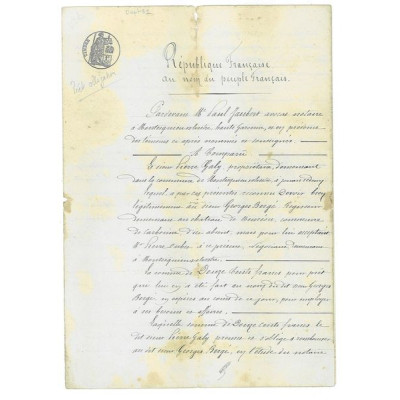 République Française
au nom du peuple Français.
Pardevant Me Paul Jaubert notaire
à Montesquieu-volvestre, haute Garonne, en présence
des témoins ci après nommés et soussignés,
A Comparu
Le sieur Pierre Galy propriétaire demeurant
dans la commune de Montesquieu-volvestre,
lequel a par ces présentes reconnu Devoir bien
légitimement au sieur Georges Bergé
demeurant au château de commune
de ci absent, mais pour lui acceptant
Mr Pierre à ce présent, demeurant
à Montesquieu-volvestre.
la somme de Douze Cents francs pour prêt
que lui en a été fait au nom du dit sieur Georges
Bergé, en espèces au cours de ce jour, pour employer
à ses besoins et affaires.
Laquelle somme de Douze cents francs le
dit sieur Pierre Galy promet et s'oblige à rembourser
au dit sieur Georges Bergé, en l'étude du notaire